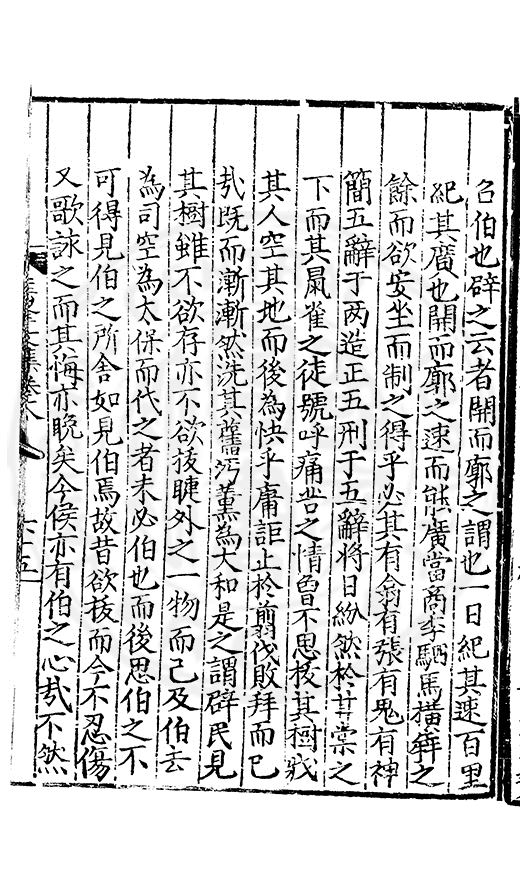 召伯也辟之云者開而廓之謂也一日紀其速百里
紀其廣也開而廓之速而能廣當商季駟馬橫奔之
餘而欲安坐而制之得乎必其有翕有張有鬼有神
簡五辭于两造正五刑于五辭將日紛然於甘棠之
下而其鼠雀之徒號呼痛苦之情曾不思拔其樹戕
其人空其地而後為快乎庸詎止於翦伐敗拜而已
㢤既而漸漸然洗其舊污薰為大和是之謂辟民見
其樹雖不欲存亦不欲拔睫外之一物而已及伯去
為司空為太保而代之者未必伯也而後思伯之不
可得見伯之所舍如見伯焉故昔欲拔而今不忍傷
又歌詠之而其悔亦晚矣今侯亦有伯之心㢤不然
文集卷八
六十五